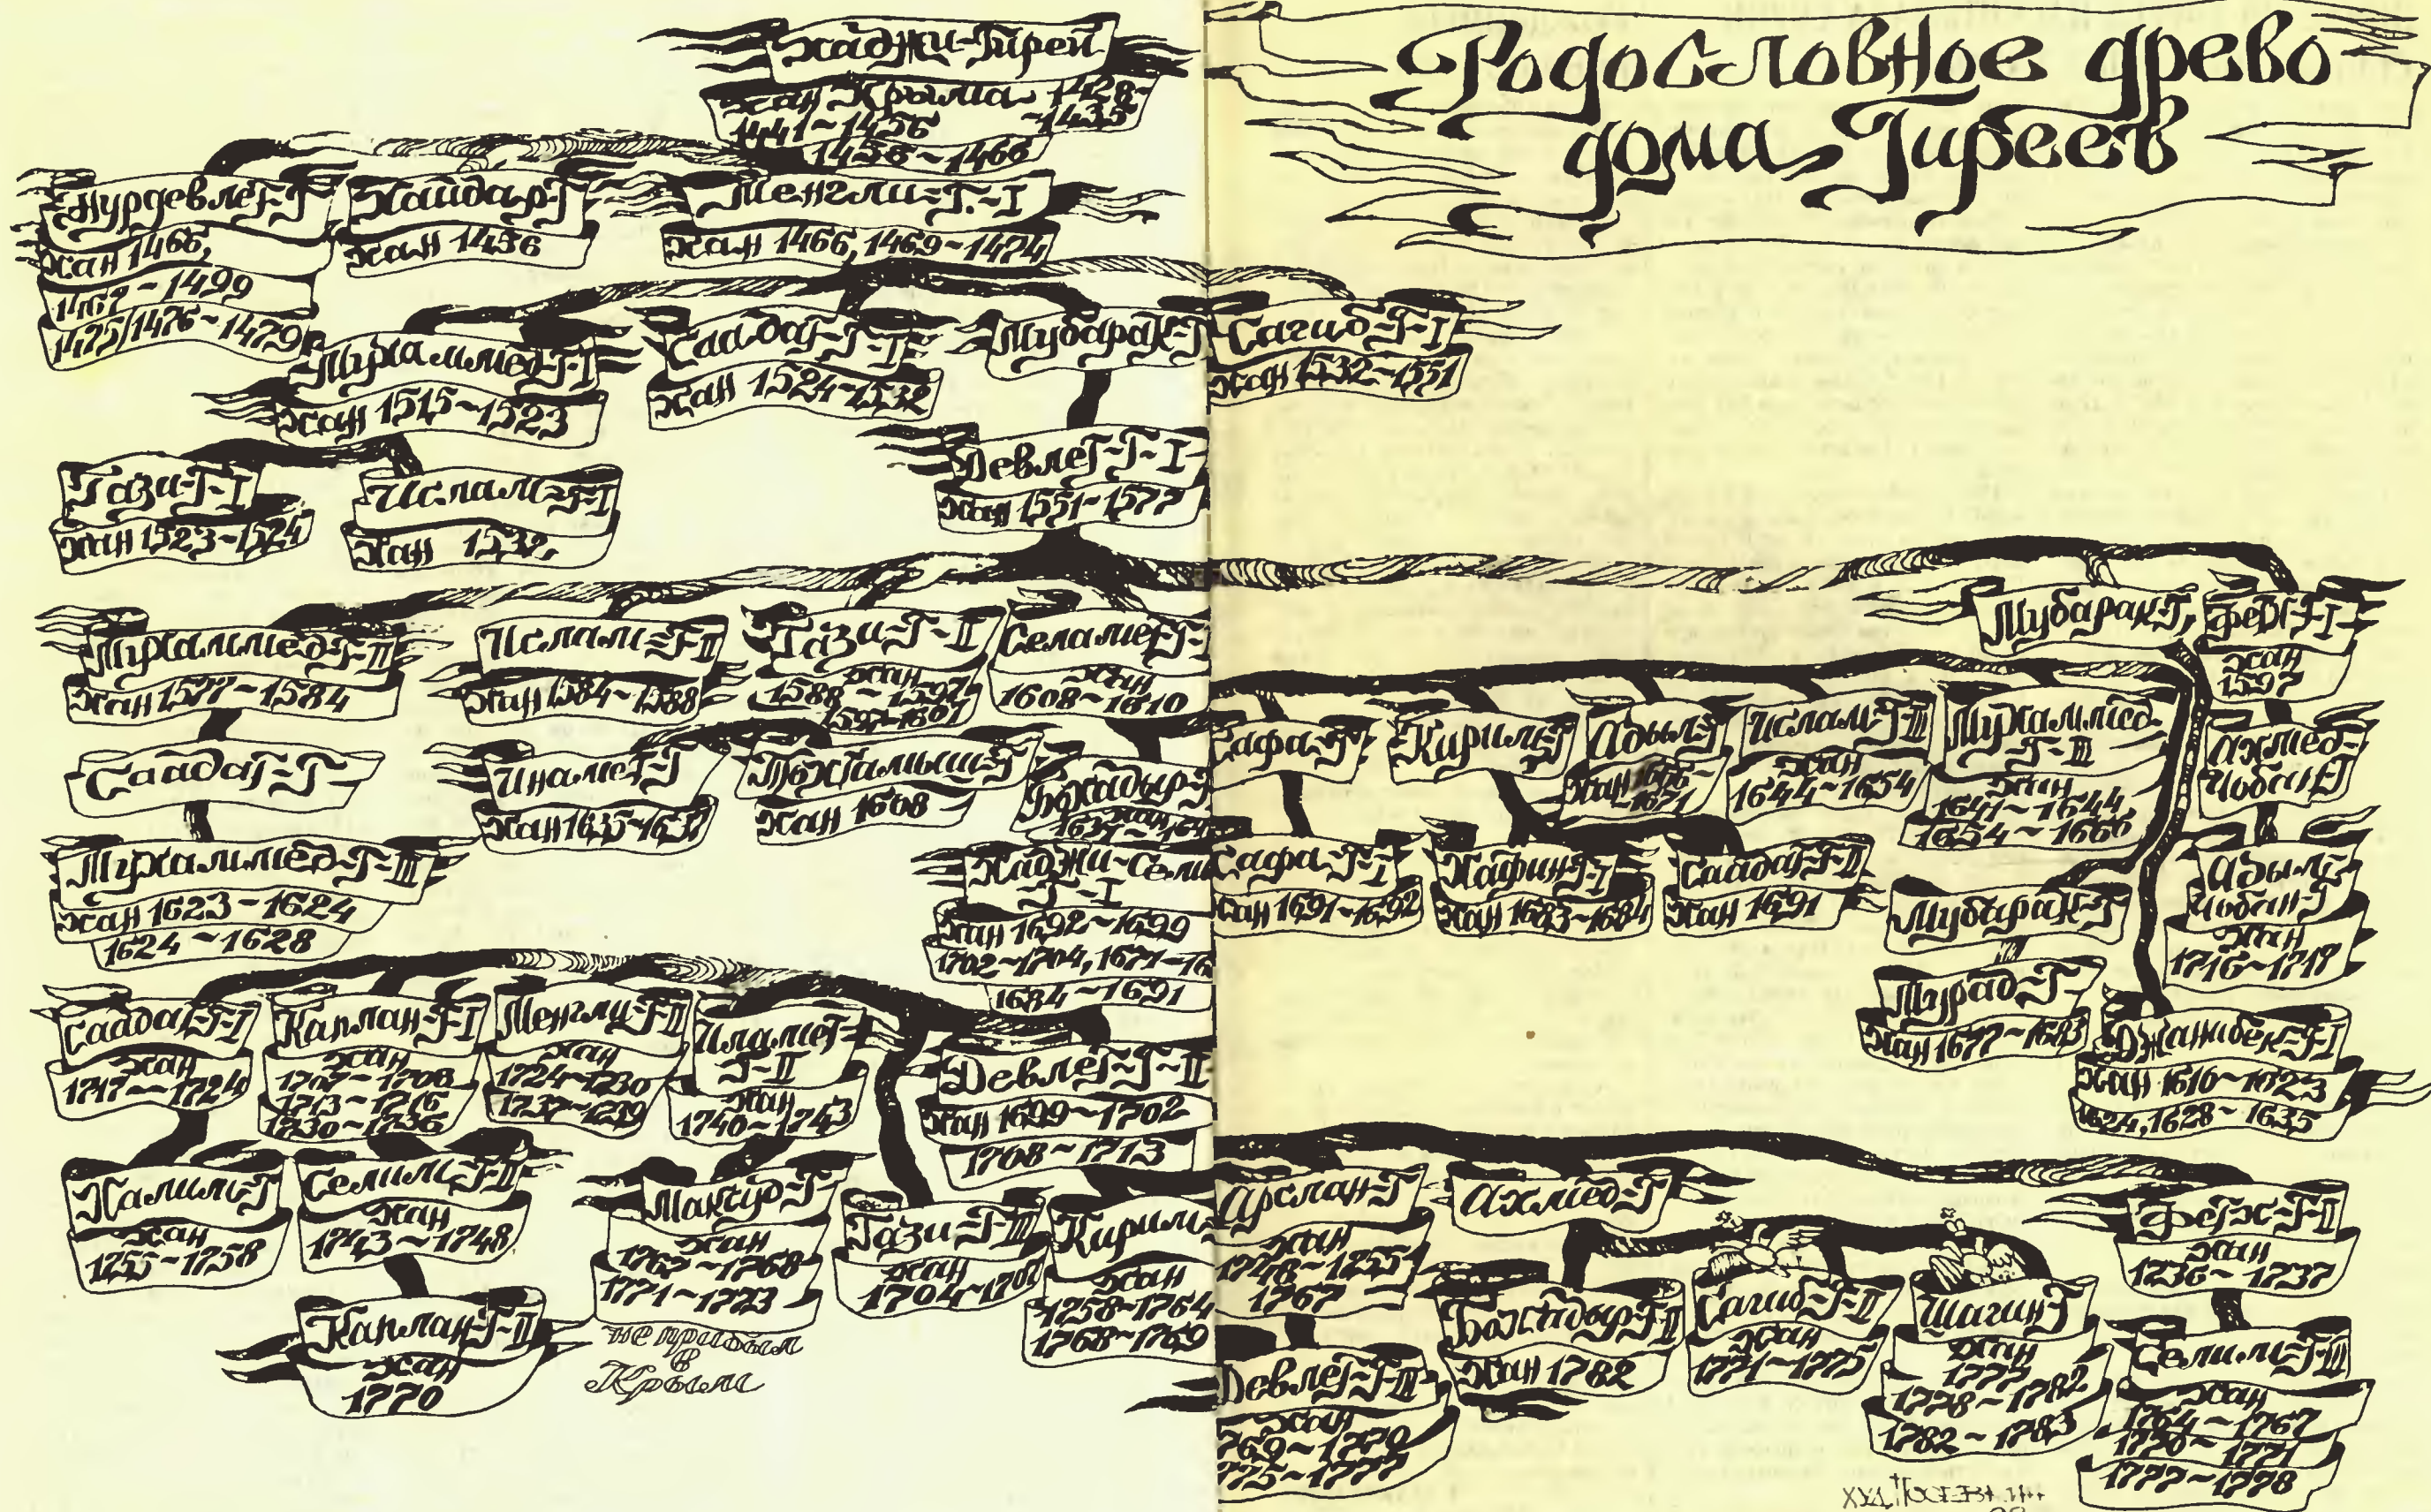 Родословное древо
дома Гиреев
Хаджи-Гирей
Хан Крыма 1428-
-1435
1441~1456
1456~1466
Нурдевлет-Г
Хан 1466,
1467~1499
1475/1476~1479
Хайдар-Г
Хан 1456
Менгли-Г.-I
Хан 1466, 1469~1474
Мухаммед-Г-I
Хан 1515~1523
Саадат-Г-I
Хан 1524~1532
Мубарак-Г
Сагиб-Г-I
Хан 1532~1551
Гази-Г-I
Хан 1523~1524
Ислам-Г-I
Хан 1532
Девлет-Г-I
Хан 1551~1577
Мухаммед-Г-II
Хан 1577~1584
Ислам-Г-II
Хан 1584~1588
Гази-Г-II
Хан
1588~1597
1597~1607
Селамет-Г-
Хан
1608~1610
Мубарак-Г
Фетх-Г-I
Хан
1597
Саадат-Г
Инамет-Г
Хан 1635~1637
Тохтамыш-Г
Хан 1608
Бохадыр-Г
Хан
Сафа-Г
Кирим-Г
Адыл-Г
Хан 1666~
~1671
Ислам-Г-III
Хан
1644~1654
Мухаммед
Г-III
Хан
1641~1644
1654~1666
Ахмед-
Чобан-Г
Мухаммед-Г-III
Хан 1623~1624
1624~1628
Хаджи-Сели
Г-I
Хан 1692~1699
1702~1704, 1671~16
1684~1691
Сафа-Г-I
Хан 1691~1692
Хафин-Г-I
Хан 1683~1684
Саадат-Г-II
Хан 1691
Мубарак-Г
Адыл-
Чобан-Г
Хан
1716~1717
Мурад-Г-
Хан 1677~1683
Джанибек-Г-I
Хан 1610~1623
1624, 1628~1635
Саадат-Г-I
Хан
1717~1724
Каплан-Г-I
Хан
1707~1708
1713~1716
1730~1736
Менгли-Г-II
Хан
1724~1730
1737~1739
Иламет-
Г-II
Хан
1740~1743
Девлет-Г-II
Хан 1699~1702
1708~1713
Халим-Г
Хан
1755~1758
Селим-Г-II
Хан
1743~1748
Максуд-Г
Хан
1767~1768
1771~1773
не прибыл
в
Крым
Гази-Г-III
Хан
1704~1707
Кирим-
Хан
1758~1764
1768~1769
Арслан-Г
Хан
1748~1755
1767
Ахмед-Г
Фетх-Г-II
Хан
1736~1737
Каплан-Г-II
Хан
1770
Девлет-Г-III
Хан
769~1770
775~1777
Бохадыр-Г-II
Хан 1782
Сагиб-Г-II
Хан
1771~1775
Шагин-Г
Хан
1777
1778~1782
1782~1783
Селим-Г-III
Хан
1764~1767
1770~1771
1777~1778